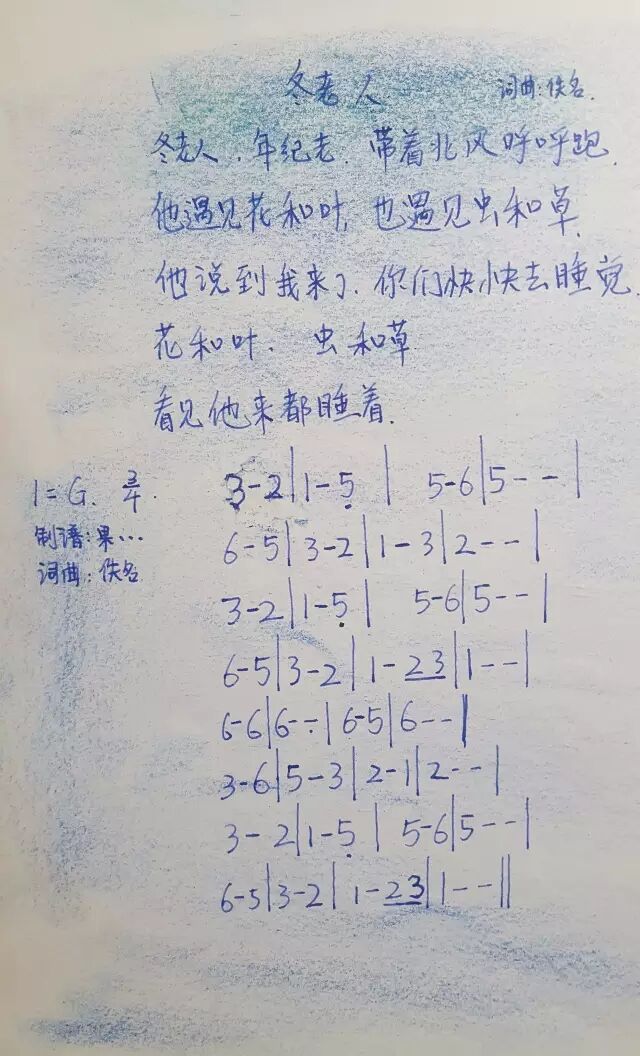 冬老人
词曲:佚名.
冬老人.年纪老.带着北风呼呼跑.
他遇见花和叶,也遇见虫和草.
他说到我来了.你们快快去睡觉.
花和叶. 虫和草
看见他来都睡着.
1=G. 3/4.
制谱:果…
词曲:佚名
3-2|1-5̣| 5-6|5--|
6-5|3-2|1-3|2--|
3-2|1-5̣| 5-6|5--|
6-5|3-2|1-2̲3̲|1--|
6-6|6--|6-5|6--|
3-6|5-3|2-1|2--|
3-2|1-5̣| 5-6|5--|
6-5|3-2|1-2̲3̲|1--||